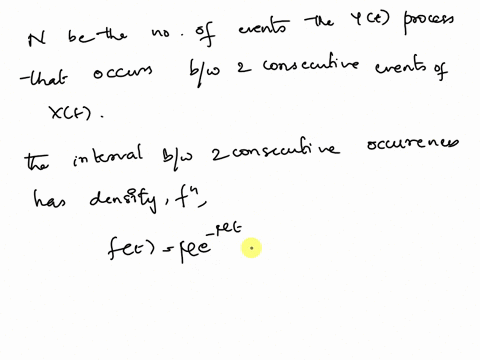 N be the no. of events the Y(t) process
that occurs b/w 2 consecutive events of
X(t).
the interval b/w 2 consecutive occureness
has density, fⁿ,
f(t) = μe^-μt